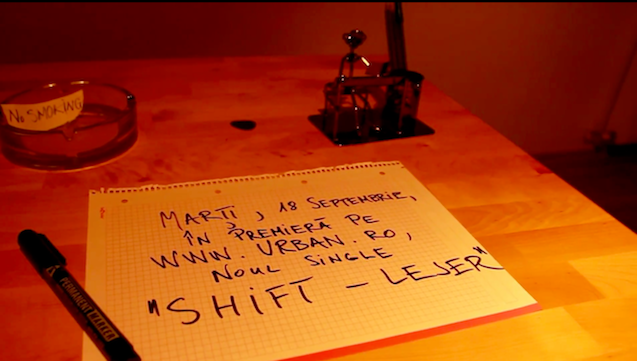 No SMOKING
MARȚI, 18 SEPTEMBRIE,
ÎN PREMIERĂ PE
WWW.URBAN.RO,
NOUL SINGLE
"SHIFT - LEJER"
PERMANENT MARKER